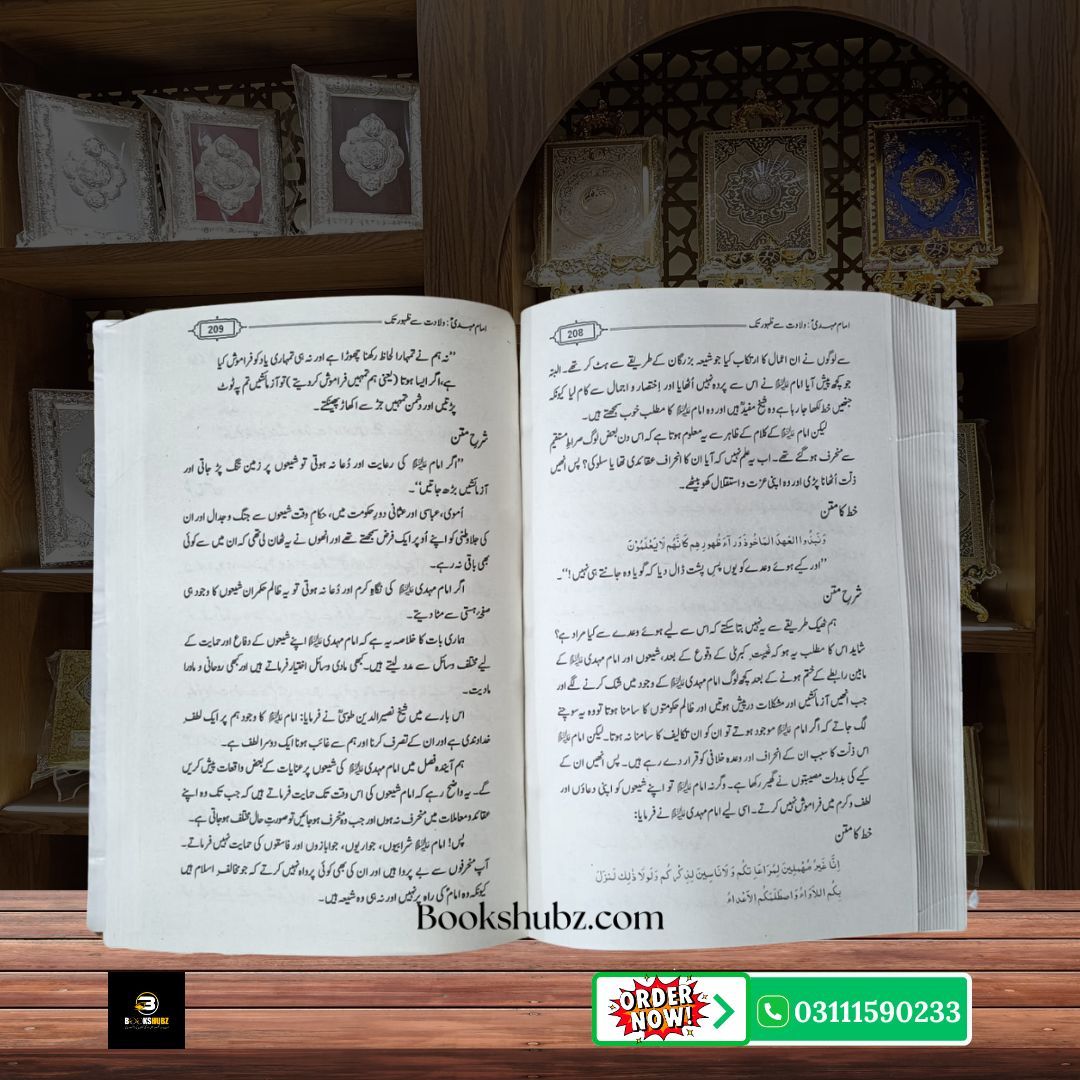 208
امام مہدیؑ: ولادت سے ظہور تک
سے لوگوں نے ان اعمال کا ارتکاب کیا جو شیعہ بزرگان کے طریقے سے ہٹ کر تھے۔ البتہ
جو کچھ پیش آیا امام علیہ السلام نے اس سے پردہ نہیں اُٹھایا اور اختصار و اجمال سے کام لیا کیونکہ
جنھیں خط لکھا جا رہا ہے وہ شیخ مفیدؒ ہیں اور وہ امام علیہ السلام کا مطلب خوب سمجھتے ہیں۔
لیکن امام علیہ السلام کے کلام کے ظاہر سے یہ معلوم ہوتا ہے کہ اس دن بعض لوگ صراطِ مستقیم
سے منحرف ہو گئے تھے۔ اب یہ علم نہیں کہ آیا ان کا انحراف عقائدی تھا یا سلوکی؟ پس انھیں
ذلت اُٹھانا پڑی اور وہ اپنی عزت و استقلال کھو بیٹھے۔
خط کا متن
وَنَبَذُوا الْعَهْدَ الْمَأْخُوذَ وَرَآءَ ظُهُورِهِم كَأَنَّهُم لَا يَعْلَمُونَ
”اور کیے ہوئے وعدے کو یوں پسِ پشت ڈال دیا کہ گویا وہ جانتے ہی نہیں!“۔
شرحِ متن
ہم ٹھیک طریقے سے یہ نہیں بتا سکتے کہ اس سے لیے ہوئے وعدے سے کیا مراد ہے؟
شاید اس کا مطلب یہ ہو کہ غیبت کبریٰ کے وقوع کے بعد، شیعوں اور امام مہدی علیہ السلام کے
مابین رابطے کے ختم ہونے کے بعد کچھ لوگ امام مہدی علیہ السلام کے وجود میں شک کرنے لگے اور
جب انھیں آزمائشیں اور مشکلات درپیش ہوتیں اور ظالم حکومتوں کا سامنا ہوتا تو وہ یہ سوچنے
لگ جاتے کہ اگر امام علیہ السلام موجود ہوتے تو ان کو ان تکالیف کا سامنا نہ ہوتا۔ لیکن امام علیہ السلام
اس ذلت کا سبب ان کے انحراف اور وعدہ خلافی کو قرار دے رہے ہیں۔ پس انھیں ان کے
کیے کی بدولت مصیبتوں نے گھیر رکھا ہے۔ وگرنہ امام علیہ السلام تو اپنے شیعوں کو اپنی دعاؤں اور
لطف و کرم میں فراموش نہیں کرتے۔ اسی لیے امام مہدی علیہ السلام نے فرمایا:
خط کا متن
اِنَّا غَيْرُ مُهْمِلِينَ لِمُرَاعَاتِكُم وَلَا نَاسِينَ لِذِكْرِكُم وَلَولَا ذٰلِكَ لَنَزَلَ
بِكُم اللَّاوَاءُ وَاصْطَلَمَكُم الأَعْدَاءُ
209
امام مہدیؑ: ولادت سے ظہور تک
”نہ ہم نے تمھارا لحاظ رکھنا چھوڑا ہے اور نہ ہی تمھاری یاد کو فراموش کیا
ہے، اگر ایسا ہوتا (یعنی ہم تمھیں فراموش کر دیتے) تو آزمائشیں تم پہ ٹوٹ
پڑتیں اور دشمن تمھیں جڑ سے اکھاڑ پھینکتے۔
شرحِ متن
”اگر امام علیہ السلام کی رعایت اور دُعا نہ ہوتی تو شیعوں پر زمین تنگ پڑ جاتی اور
آزمائشیں بڑھ جاتیں“۔
اُموی، عباسی اور عثمانی دورِ حکومت میں، حکامِ وقت شیعوں سے جنگ و جدال اور ان
کی جلاوطنی کو اپنے اُوپر ایک فرض سمجھتے تھے اور انھوں نے یہ ٹھان لی تھی کہ ان میں سے کوئی
بھی باقی نہ رہے۔
اگر امام مہدی علیہ السلام کی نگاہِ کرم اور دُعا نہ ہوتی تو یہ ظالم حکمران شیعوں کا وجود ہی
صفحۂ ہستی سے مٹا دیتے۔
ہماری بات کا خلاصہ یہ ہے کہ امام مہدی علیہ السلام اپنے شیعوں کے دفاع اور حمایت کے
لیے مختلف وسائل سے مدد لیتے ہیں۔ کبھی مادی وسائل اختیار فرماتے ہیں اور کبھی روحانی و ماورا
مادیت۔
اس بارے میں شیخ نصیر الدین طوسیؒ نے فرمایا: امام علیہ السلام کا وجود ہم پر ایک لطفِ
خداوندی ہے اور ان کے تصرف کرنا اور ہم سے غائب ہونا ایک دوسرا لطف ہے۔
ہم آیندہ فصل میں امام مہدی علیہ السلام کی شیعوں پر عنایات کے بعض واقعات پیش کریں
گے۔ یہ واضح رہے کہ امام شیعوں کی اس وقت تک حمایت فرماتے ہیں کہ جب تک وہ اپنے
عقائد و معاملات میں منحرف نہ ہوں اور جب وہ منحرف ہو جائیں تو صورتِ حال مختلف ہو جاتی ہے۔
پس! امام علیہ السلام شرابیوں، جواریوں، جوابازوں اور فاسقوں کی حمایت نہیں فرماتے۔
آپ منحرفوں سے بے پروا ہیں اور ان کی بھی کوئی پرواہ نہیں کرتے کہ جو مخالفِ اسلام ہیں
کیونکہ وہ امامؑ کی راہ پر نہیں اور نہ ہی وہ شیعہ ہیں۔
Bookshubz.com
BOOKSHUBZ
ORDER NOW!
03111590233